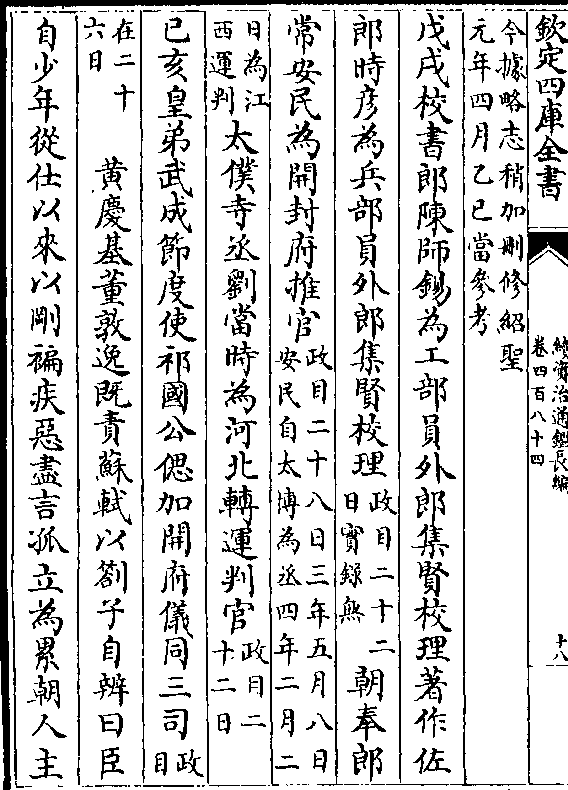 欽定四庫全書
續資治通鑑長編
卷四百八十四
十八
今據略志稍加刪修紹聖
元年四月乙巳當參考
戊戌校書郎陳師錫為工部員外郎集賢校理著作佐
郎時彦為兵部員外郎集賢校理政目二十二
日實録無
朝奉郎
常安民為開封府推官政目二十八日三年五月八日
安民自太博為丞四年二月二
日為江
西運判
太僕寺丞劉當時為河北轉運判官政目二
十二日
已亥皇弟武成節度使祁國公偲加開府儀同三司政
目
在二十
六日
黄慶基董敦逸既責蘇軾以劄子自辨曰臣
自少年從仕以來以剛褊疾惡盡言孤立為累朝人主